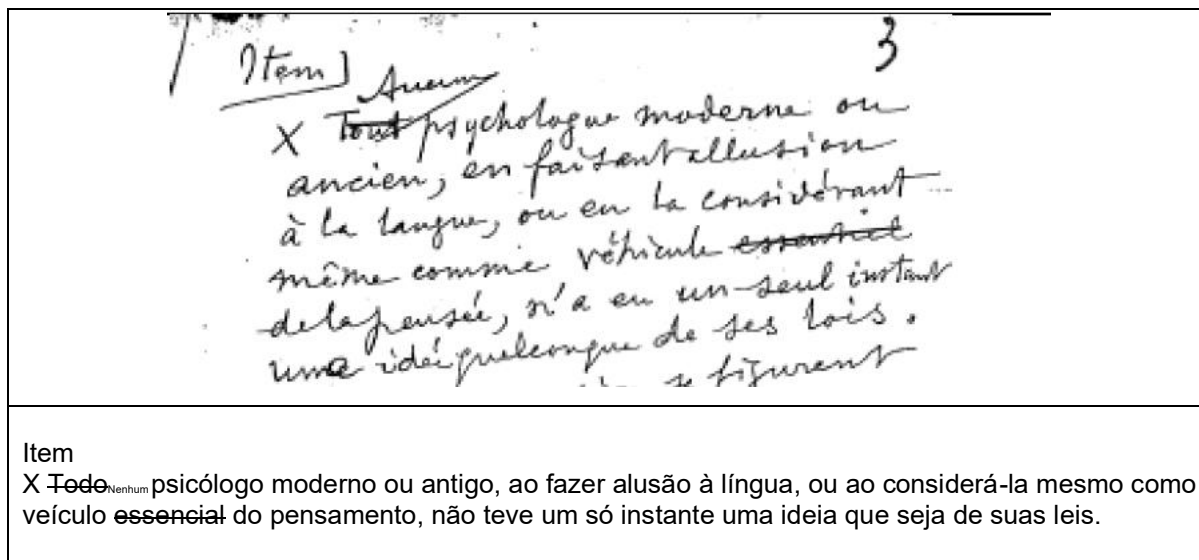 3
Item]
Aucun
X Tout psychologue moderne ou
ancien, en faisant allusion
à la langue, ou en la considérant
même comme véhicule essentiel
de la pensée, n'a eu un seul instant
une idée quelconque de ses lois.
se figurent
Item
X Todo Nenhum psicólogo moderno ou antigo, ao fazer alusão à língua, ou ao considerá-la mesmo como
veículo essencial do pensamento, não teve um só instante uma ideia que seja de suas leis.